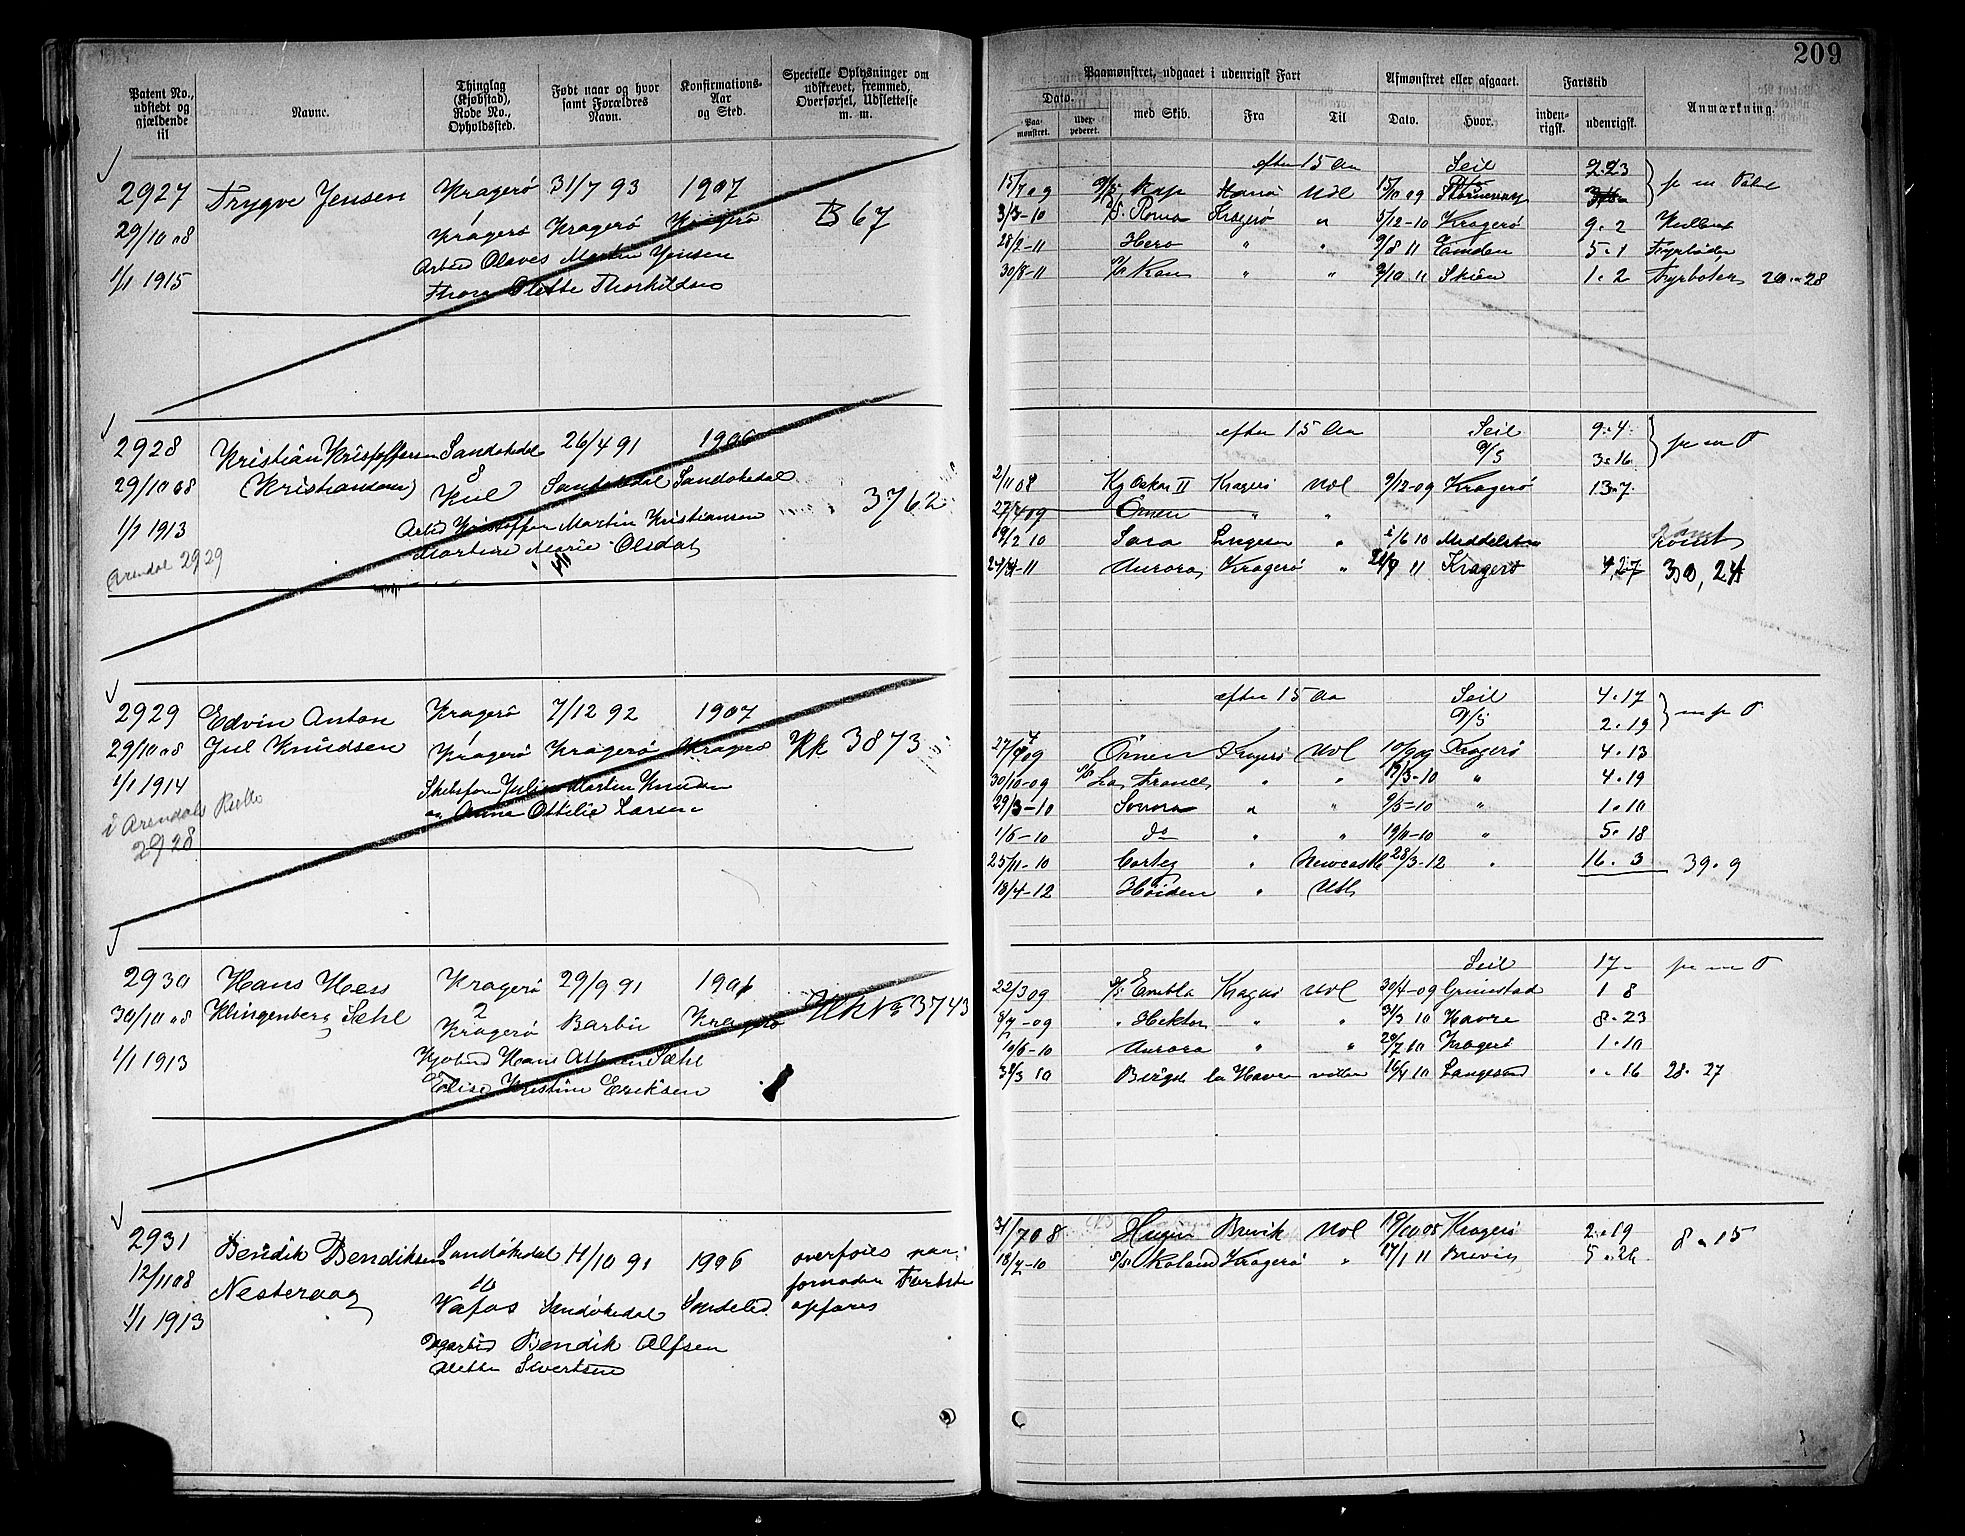 209
Patent No., udstedt og gjældende til
Navne.
Thinglag (Kjøbstad), Rode No., Opholdssted.
Født naar og hvor samt Forældres Navn.
Konfirmations-Aar og Sted.
Specielle Oplysninger om udskrevet, fremmed, Overførsel, Udslettelse m. m.
Paamønstret, udgaaet i udenrigsk Fart
Afmønstret eller afgaaet.
Fartstid
Anmærkning.
Dato.
Paa-mønstret.
Udex-pederet.
med Skib.
Fra
Til
Dato.
Hvor.
inden-rigsk.
udenrigsk.
2927 Trygve Jensen Kragerø 31/7 93 1907
29/10 08 1 Kragerø Kragerø Kragerø B 67
1/1 1915 Arbeid Olaves Martin Jensen
Thora Olette Thorkildsen
efter 15 Aar Seil 2.23
15/7 09 Udl 15/10 09
3/3-10 D/S Roma Kragerø " 5/12-10 Kragerø 9.2
28/2-11 Hero " " 9/8 11 Emden 5.1 Fyrbøder
30/8-11 " " 2/10 11 Skien 1.2 Fyrbøter 20.28
2928 Kristian Kristoffersen Sandøkedal 26/4 91 1906
29/10 08 (Kristiansen) 8 Kiil Sandøkedal Sandøkedal 3762
1/1 1913 Arbd Kristoffer Martin Kristiansen
Arendal 2929 Martine Marie Olsdat
efter 15 Aar Seil 9.4
D/S 3.16
2/11 08 Kg Oskar II Kragerø Udl 9/12-09 Kragerø 13.7
27/4 09 Ørnen " "
19/2 10 Sara Langesun " 2/6 10 Middelsbro rømt
24/4-11 Aurora Kragerø " 21/9 11 Kragerø 4.27 30,24
2929 Edvin Anton Kragerø 7/12 92 1907
29/10 08 Jul Knudsen 1 Kragerø Kragerø Kragerø Kk 3873
1/1 1914 Skibsfør Julius Martin Knudsen
i Arendals Rulle 2928 og Anna Ottilie Larsen
efter 15 Aar Seil 4.17
D/S 2.19
27/4 09 Ørnen Kragerø Udl 10/9 09 Kragerø 4.13
30/10-09 S/S La France " " 19/3-10 " 4.19
29/3-10 Sonora " " 9/5-10 " 1.10
1/6-10 do " " 19/11-10 " 5.18
25/11-10 Cortez " Newcastle 28/3-12 " 16.3 39.9
18/4-12 Heiden " Udl
2930 Hans Hess Kragerø 29/9 91 1906
30/10 08 Klingenberg Sæhl 2 Kragerø Barbu Kragerø Kk No 3743
1/1 1913
Elise Kristine Eriksen
Seil 17
22/3 09 D/S Embla Kragerø Udl 30/4-09 Grimstad 1 8
8/7-09 " Hektor " " 31/3 10 Havre 8.23
10/6-10 Aurora " " 20/7 10 Kragerø 1.10
31/3 10 la Havre 16/4 10 Langesund ".16 28.27
2931 Bendik Bendiksen Sandøkedal 4/10 91 1906 overføies naar
12/11 08 Nesteraag 10 Vafos Sandøkedal Sandøked fornøden Fartstid
1/1 1913 opføres
Dagarbeid Bendik Alfsen
Alette Sivertsen
31/7 08 Hugin Brevik Udl 19/10 08 Kragerø 2.19 8.15
18/7-10 S/S Roland Kragerø " 17/1 11 Brevig 5.26